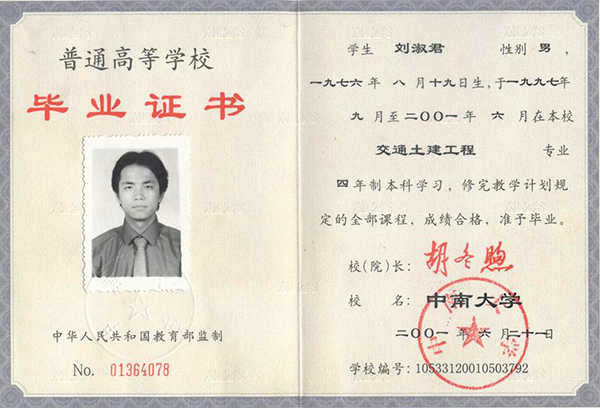 普通高等学校
毕业证书
中华人民共和国教育部监制
No. 01364078
学生 刘淑君 性别 男，
一九七六年 八 月十九日生，于一九九七年
九 月至二〇〇一年 六 月在本校
交通土建工程 专业
四年制本科学习，修完教学计划规
定的全部课程，成绩合格，准予毕业。
校(院)长： 胡冬煦
校 名： 中南大学
二〇〇一 年 六 月二十一日
学校编号：10533120010503792